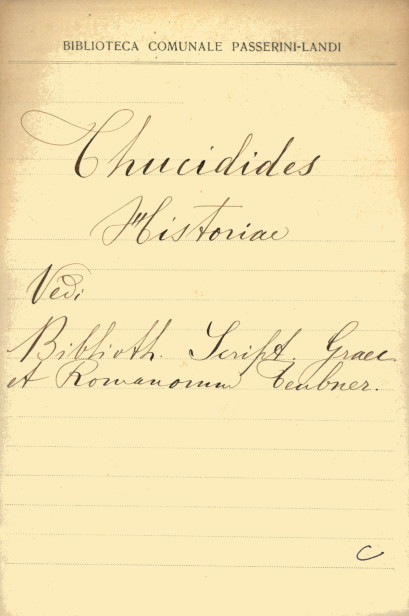 BIBLIOTECA COMUNALE PASSERINI-LANDI
Thucidides
Historiae
Vedi
Biblioth. Script. Graec.
et Romanorum Teubner.
C